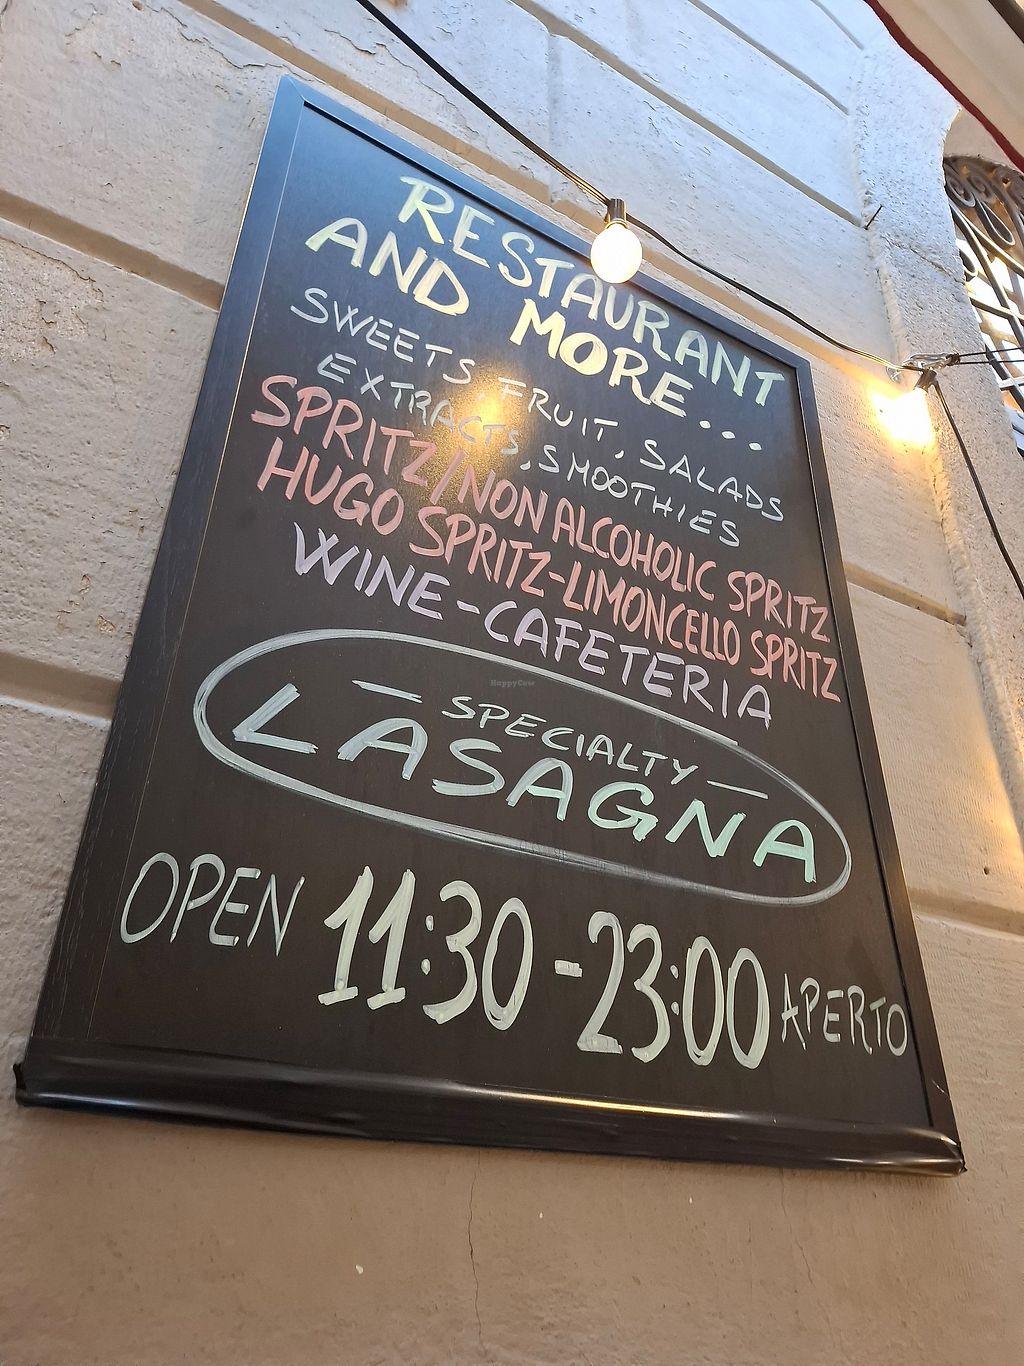 RESTAURANT
AND MORE...
SWEETS, FRUIT, SALADS
EXTRACTS, SMOOTHIES
SPRITZ/NON ALCOHOLIC SPRITZ
HUGO SPRITZ-LIMONCELLO SPRITZ
WINE-CAFETERIA
- SPECIALTY -
LASAGNA
OPEN 11:30-23:00 APERTO
HappyCow